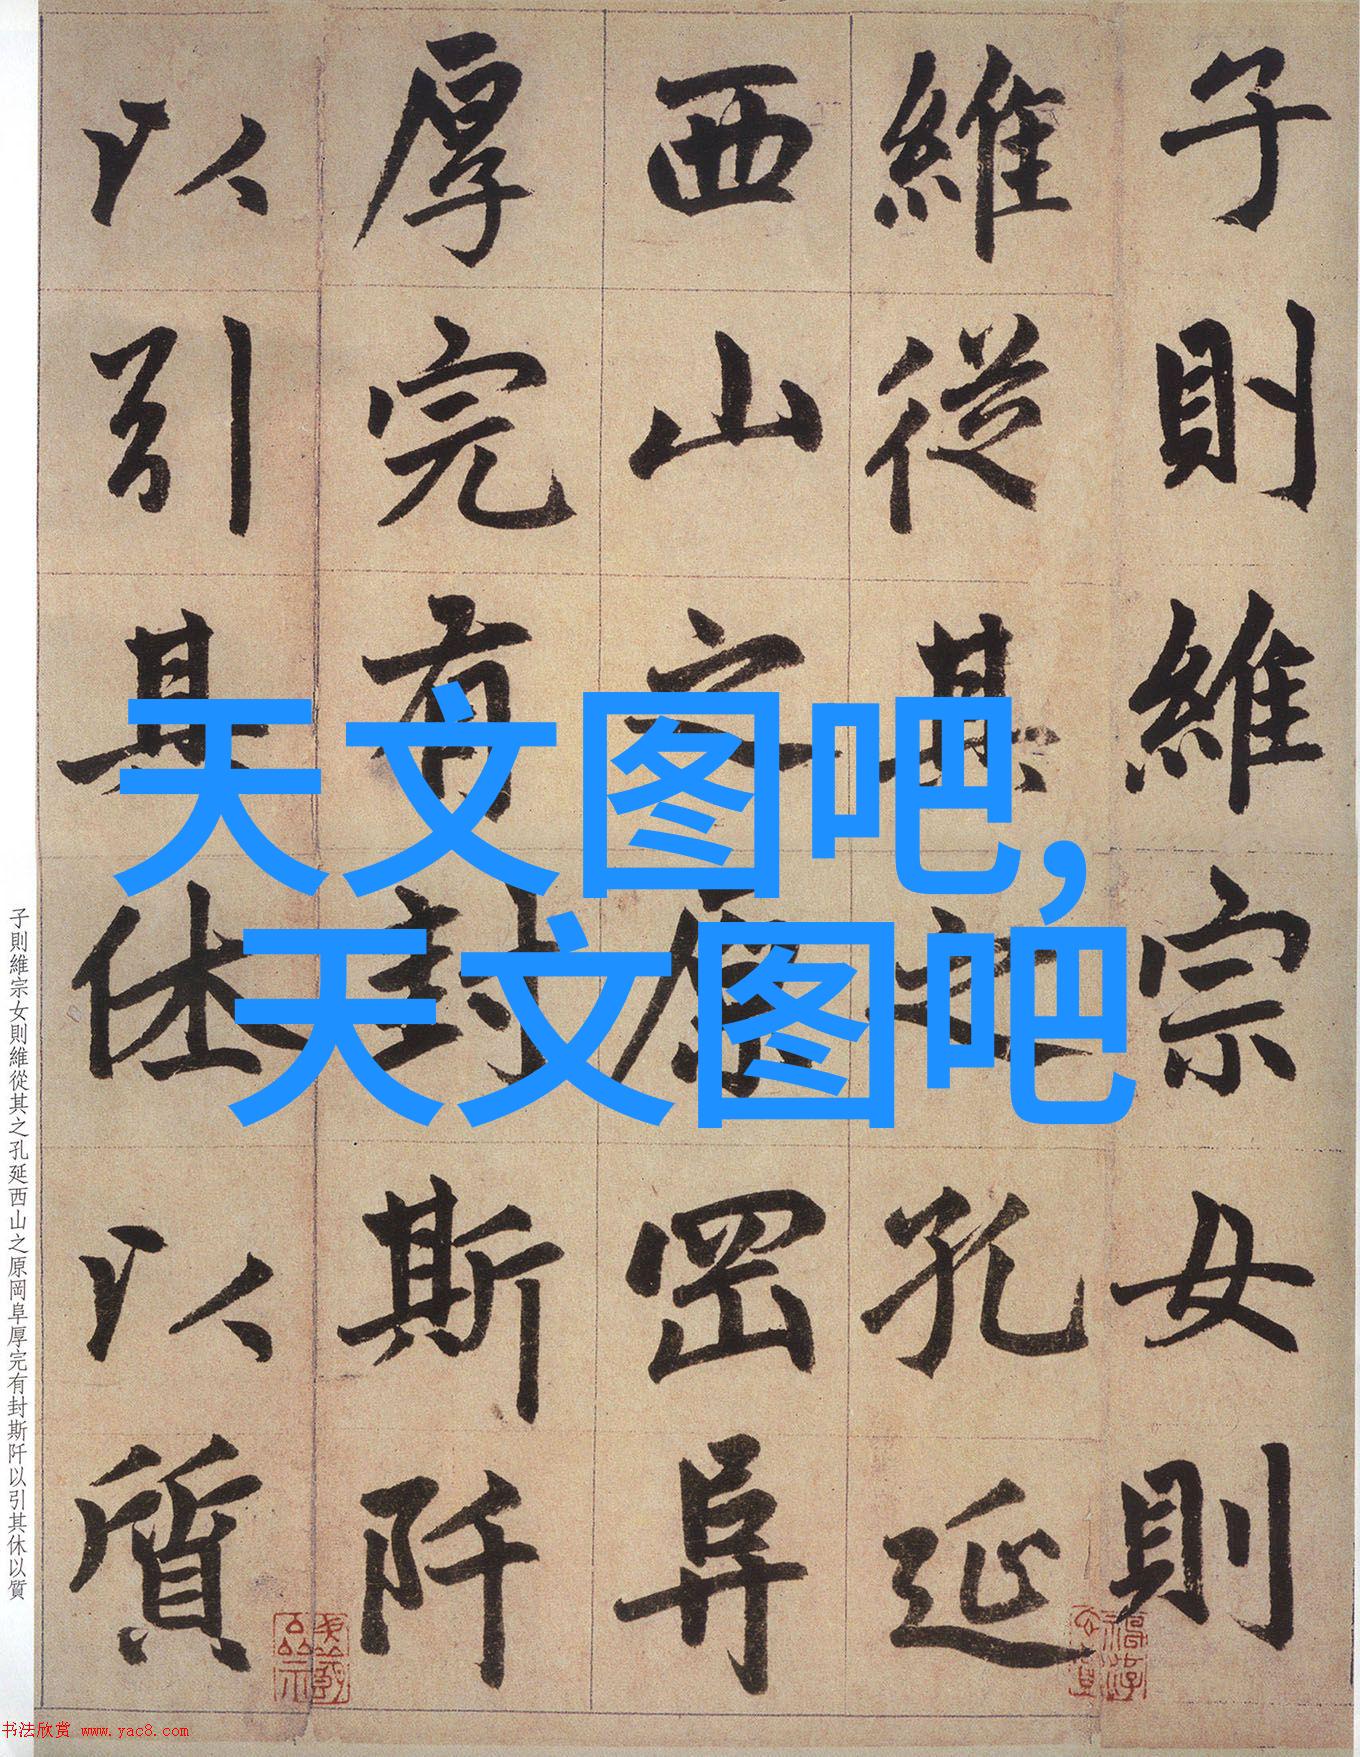 子則維宗女則
維從其之孔延
西山之原罡阜
厚完有封斯阡
以引其休以質
天文图吧，
天文图吧
子則維宗女則維從其之孔延西山之原岡阜厚完有封斯阡以引其休以質
书法欣赏 www.yac8.com